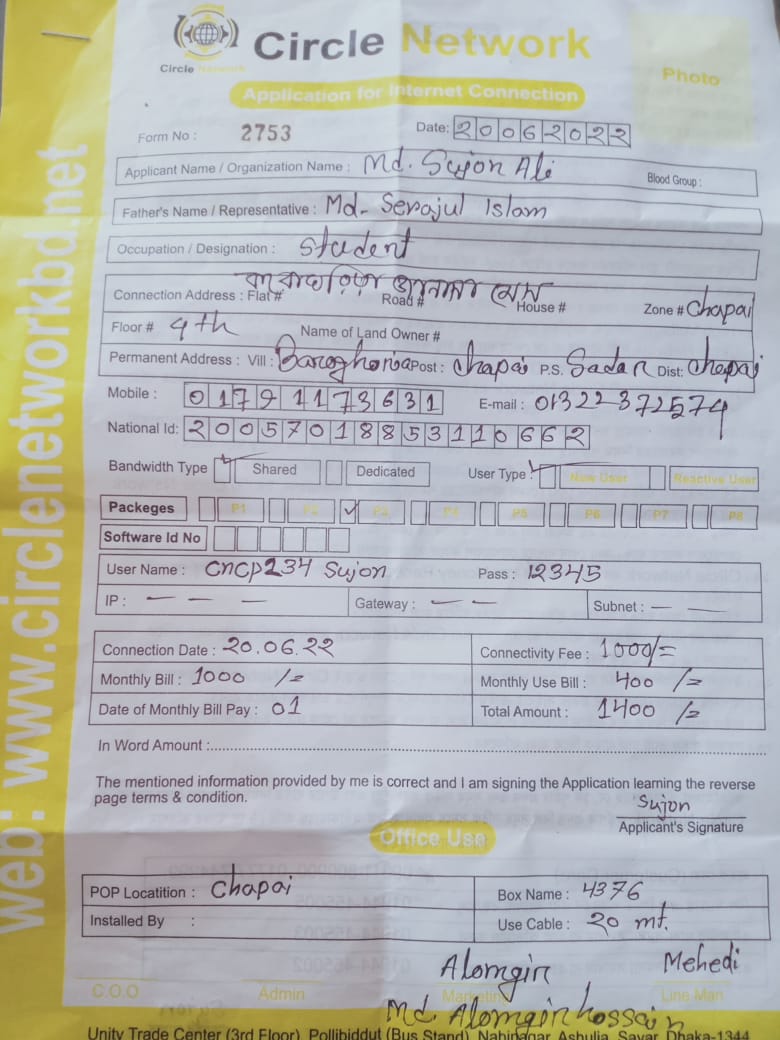 Circle Network
Circle Network
Application for Internet Connection
Photo
Form No : 2753
Date: 20062022
Applicant Name / Organization Name : Md. Sujon Ali Blood Group :
Father's Name / Representative : Md- Serajul Islam
Occupation / Designation : Student
Connection Address : Flat # Road # House # Zone # Chapai
Floor # 4th Name of Land Owner #
Permanent Address : Vill : Baroghoria Post : Chapai P.S. Sadar Dist: Chapai
Mobile : 01791173631 E-mail : 01322372574
National Id: 20057018853110662
Bandwidth Type Shared Dedicated User Type : New User Reactive User
Packeges P1 P2 ✓ P3 P4 P5 P6 P7 P8
Software Id No
User Name : CNCP234 Sujon Pass : 12345
IP : — — — Gateway : — — Subnet : — —
Connection Date : 20.06.22 Connectivity Fee : 1000/=
Monthly Bill : 1000 /= Monthly Use Bill : 400 /=
Date of Monthly Bill Pay : 01 Total Amount : 1400 /=
In Word Amount :
The mentioned information provided by me is correct and I am signing the Application learning the reverse
page terms & condition.
Sujon
Applicant's Signature
Office Use
POP Locatition : Chapai Box Name : 4376
Installed By : Use Cable : 20 mt.
Alomgir Mehedi
C.O.O Admin Marketing Line Man
Md. Alomgir hossain
Unity Trade Center (3rd Floor), Pollibiddut (Bus Stand), Nabinagar, Ashulia, Savar, Dhaka-1344
web: www.circlenetworkbd.net